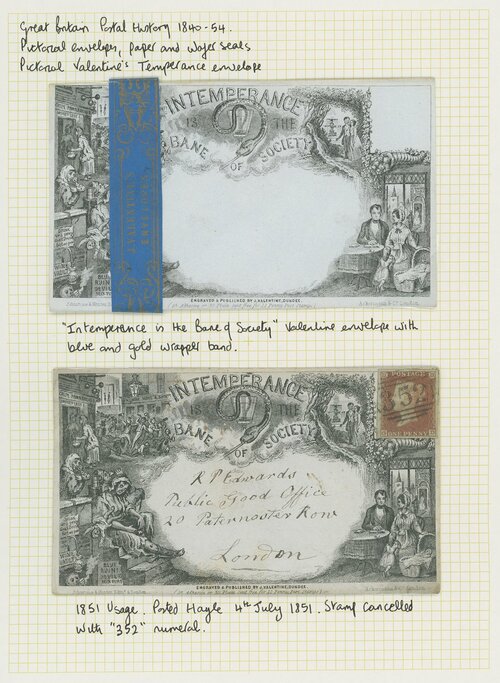 Great Britain Postal History 1840-54.
Pictorial envelopes, paper and wafer seals
Pictorial Valentine's Temperance envelope
INTEMPERANCE
IS THE
BANE OF SOCIETY
J. VALENTINE'S
ENVELOPES
BLUE
RUIN
DEVILS
ENGRAVED & PUBLISHED BY J. VALENTINE, DUNDEE.
Ackermann & Co. London
"Intemperance is the Bane of Society" Valentine envelope with
blue and gold wrapper band.
INTEMPERANCE
IS THE
BANE OF SOCIETY
POSTAGE
352
ONE PENNY
R P Edwards
Public Good Office
20 Paternoster Row
London
BLUE
RUIN
DEVILS
ENGRAVED & PUBLISHED BY J. VALENTINE, DUNDEE.
1851 Usage. Posted Hayle 4th July 1851. Stamp cancelled
with "352" numeral.